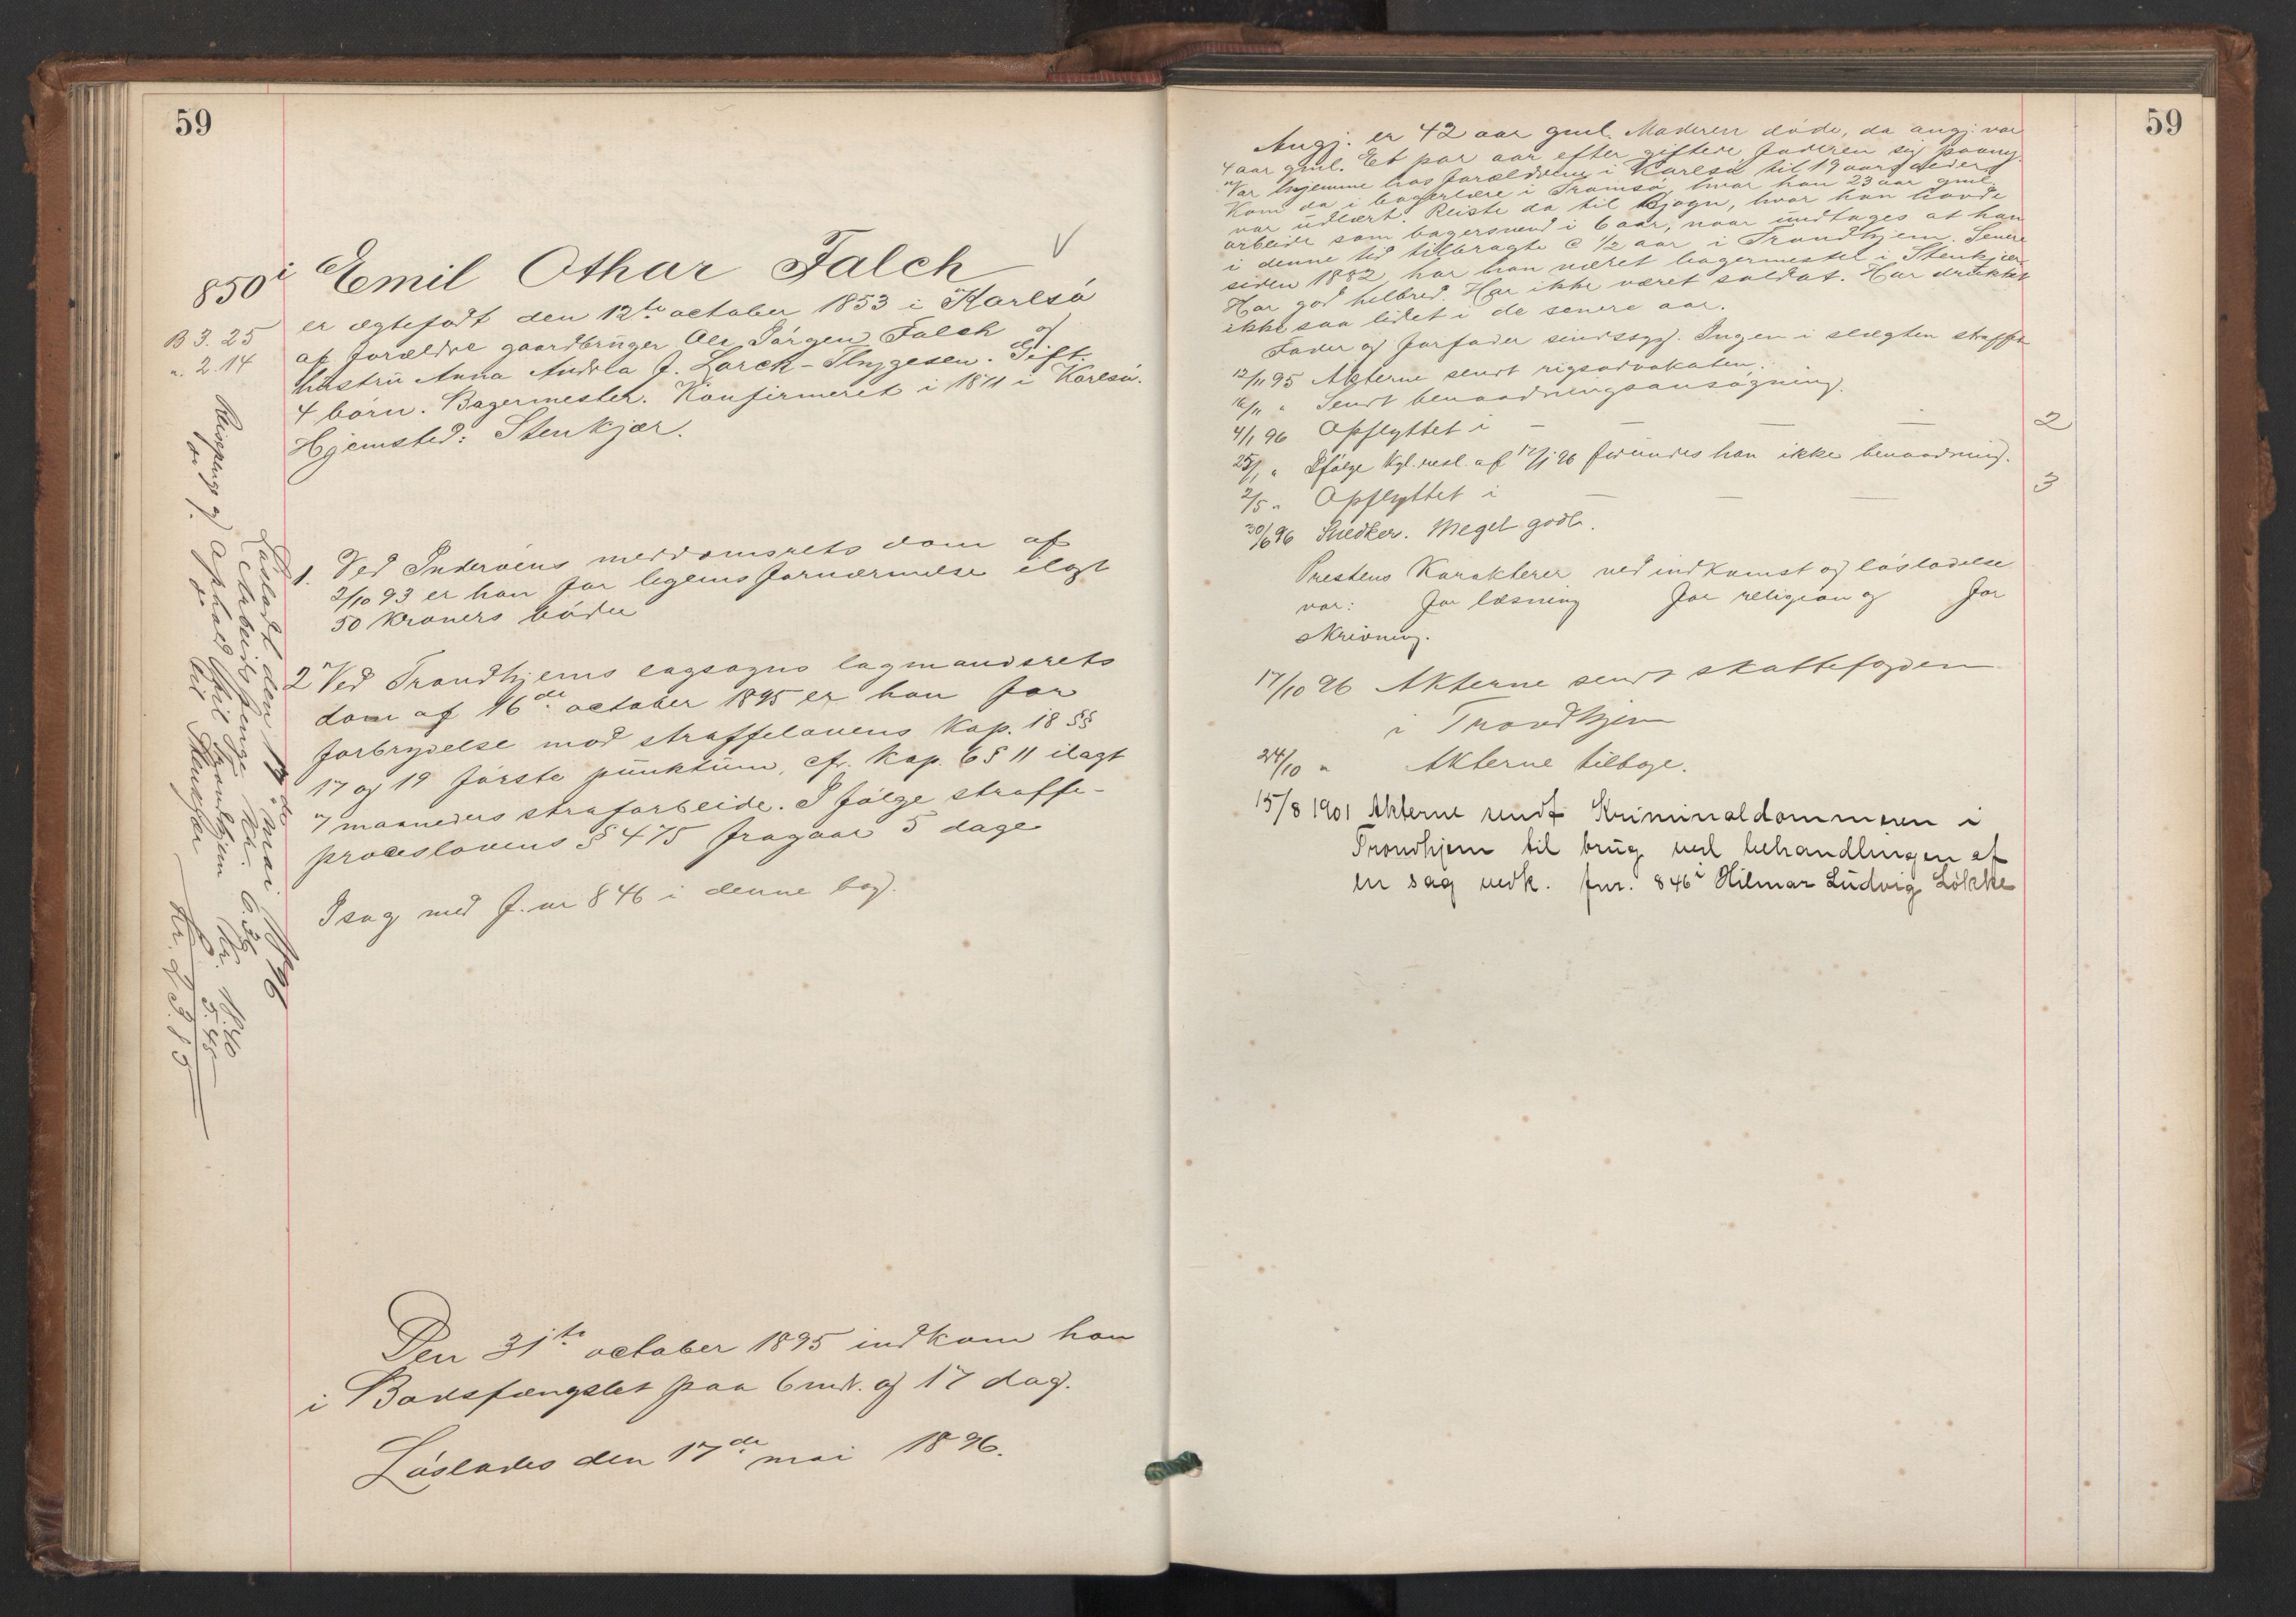 59
850 i Emil Othar Falch
B 3. 25
" 2. 14
er ægtefødt den 12te october 1853 i Karlsø
af forældre gaardbruger Ole Jørgen Falch og
hustru Anna Andrea J. Lorck-Thygesen. Gift.
4 børn. Bagermester. Konfirmeret i 1871 i Karlsø.
Hjemsted: Stenkjær.
1. Ved Inderøens meddomsrets dom af
2/10 93 er han for legemsfornærmelse ilagt
50 kroners bøder
2 Ved Trondhjems lagsogns lagmandsrets
dom af 16de october 1895 er han for
forbrydelse mod straffelovens kap. 18 §§
17 og 19 første punktum, cfr. kap. 6 § 11 ilagt
7 maaneders strafarbeide. I følge straffe-
proceslovens § 475 fragaar 5 dage
I sag med f. nr 846 i denne bog.
Løsladt den 17de mai 1896
Arbeidspenge kr. 6.36
Reisepenge og ophold til Trondhjem kr.
do. do til Stenkjær 5.45
Den 31te october 1895 indkom han
i Bodsfængslet paa 6 md. og 17 dag.
Løslades den 17de mai 1896.
59
Angj. er 42 aar gml. Moderen døde, da angj. var
4 aar gml. Et par aar efter giftede faderen sig paany.
Var hjemme hos forældrene i Karlsø til 19 aars alder.
Kom da i bagerlære i Tromsø, hvor han 23 aar gml.
var udlært. Reiste da til , hvor han havde
arbeide som bagersvend i 6 aar, naar undtages at han
i denne tid tilbragte c 1/2 aar i Trondhjem. Senere
siden 1882 har han været bagermester i Stenkjær.
Har god helbred. Har ikke været soldat. Har drukket
ikke saa lidet i de senere aar.
Fader og farfader sindssyg. Ingen i slægten straffet
12/11 95 Akterne sendt rigsadvokaten.
16/11 " Sendt benaadningsansøgning.
4/1 96 Opflyttet i — — — — 2
25/1 " Ifølge kgl. resl. af 17/1 96 forundes han ikke benaadning.
2/5 " Opflyttet i — — — 3
30/6 96 Snedker. Meget godt.
Prestens Karakterer ved indkomst og løsladelse
var: for læsning for religion og for
skrivning.
17/10 96 Akterne sendt skattefogden
i Trondhjem
24/10 " Akterne tilbage.
15/8 1901 Akterne sendt Kriminaldommeren i
Trondhjem til brug ved behandlingen af
en sag vedk. fnr. 846 i Hilmar Ludvig Løkke